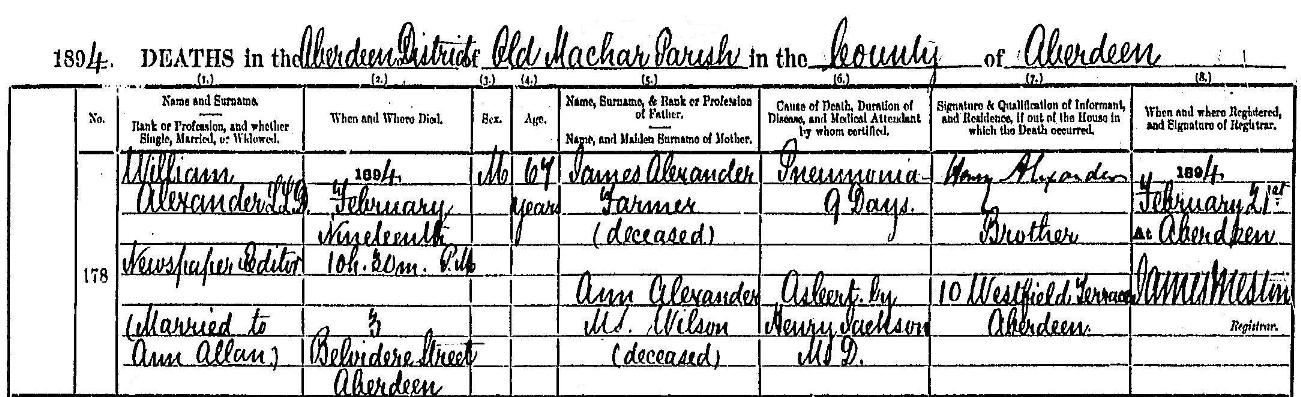 1894. DEATHS in the Aberdeen District of Old Machar Parish in the County of Aberdeen
(1.) (2.) (3.) (4.) (5.) (6.) (7.) (8.)
No.
Name and Surname.
Rank or Profession, and whether
Single, Married, or Widowed.
When and Where Died.
Sex.
Age.
Name, Surname, & Rank or Profession
of Father.
Name, and Maiden Surname of Mother.
Cause of Death, Duration of
Disease, and Medical Attendant
by whom certified.
Signature & Qualification of Informant,
and Residence, if out of the House in
which the Death occurred.
When and where Registered,
and Signature of Registrar.
178
William
Alexander LLD
Newspaper Editor
(Married to
Ann Allan)
1894.
February
Nineteenth
10h. 30m. P.M.
3
Belvidere Street
Aberdeen
M
67
years
James Alexander
Farmer
(deceased)
Ann Alexander
M.S. Wilson
(deceased)
Pneumonia
9 Days.
As cert. by
Henry Jackson
M.D.
Henry Alexander
Brother
10 Westfield Terrace
Aberdeen.
1894.
February 21st
At Aberdeen
James Meston
Registrar.